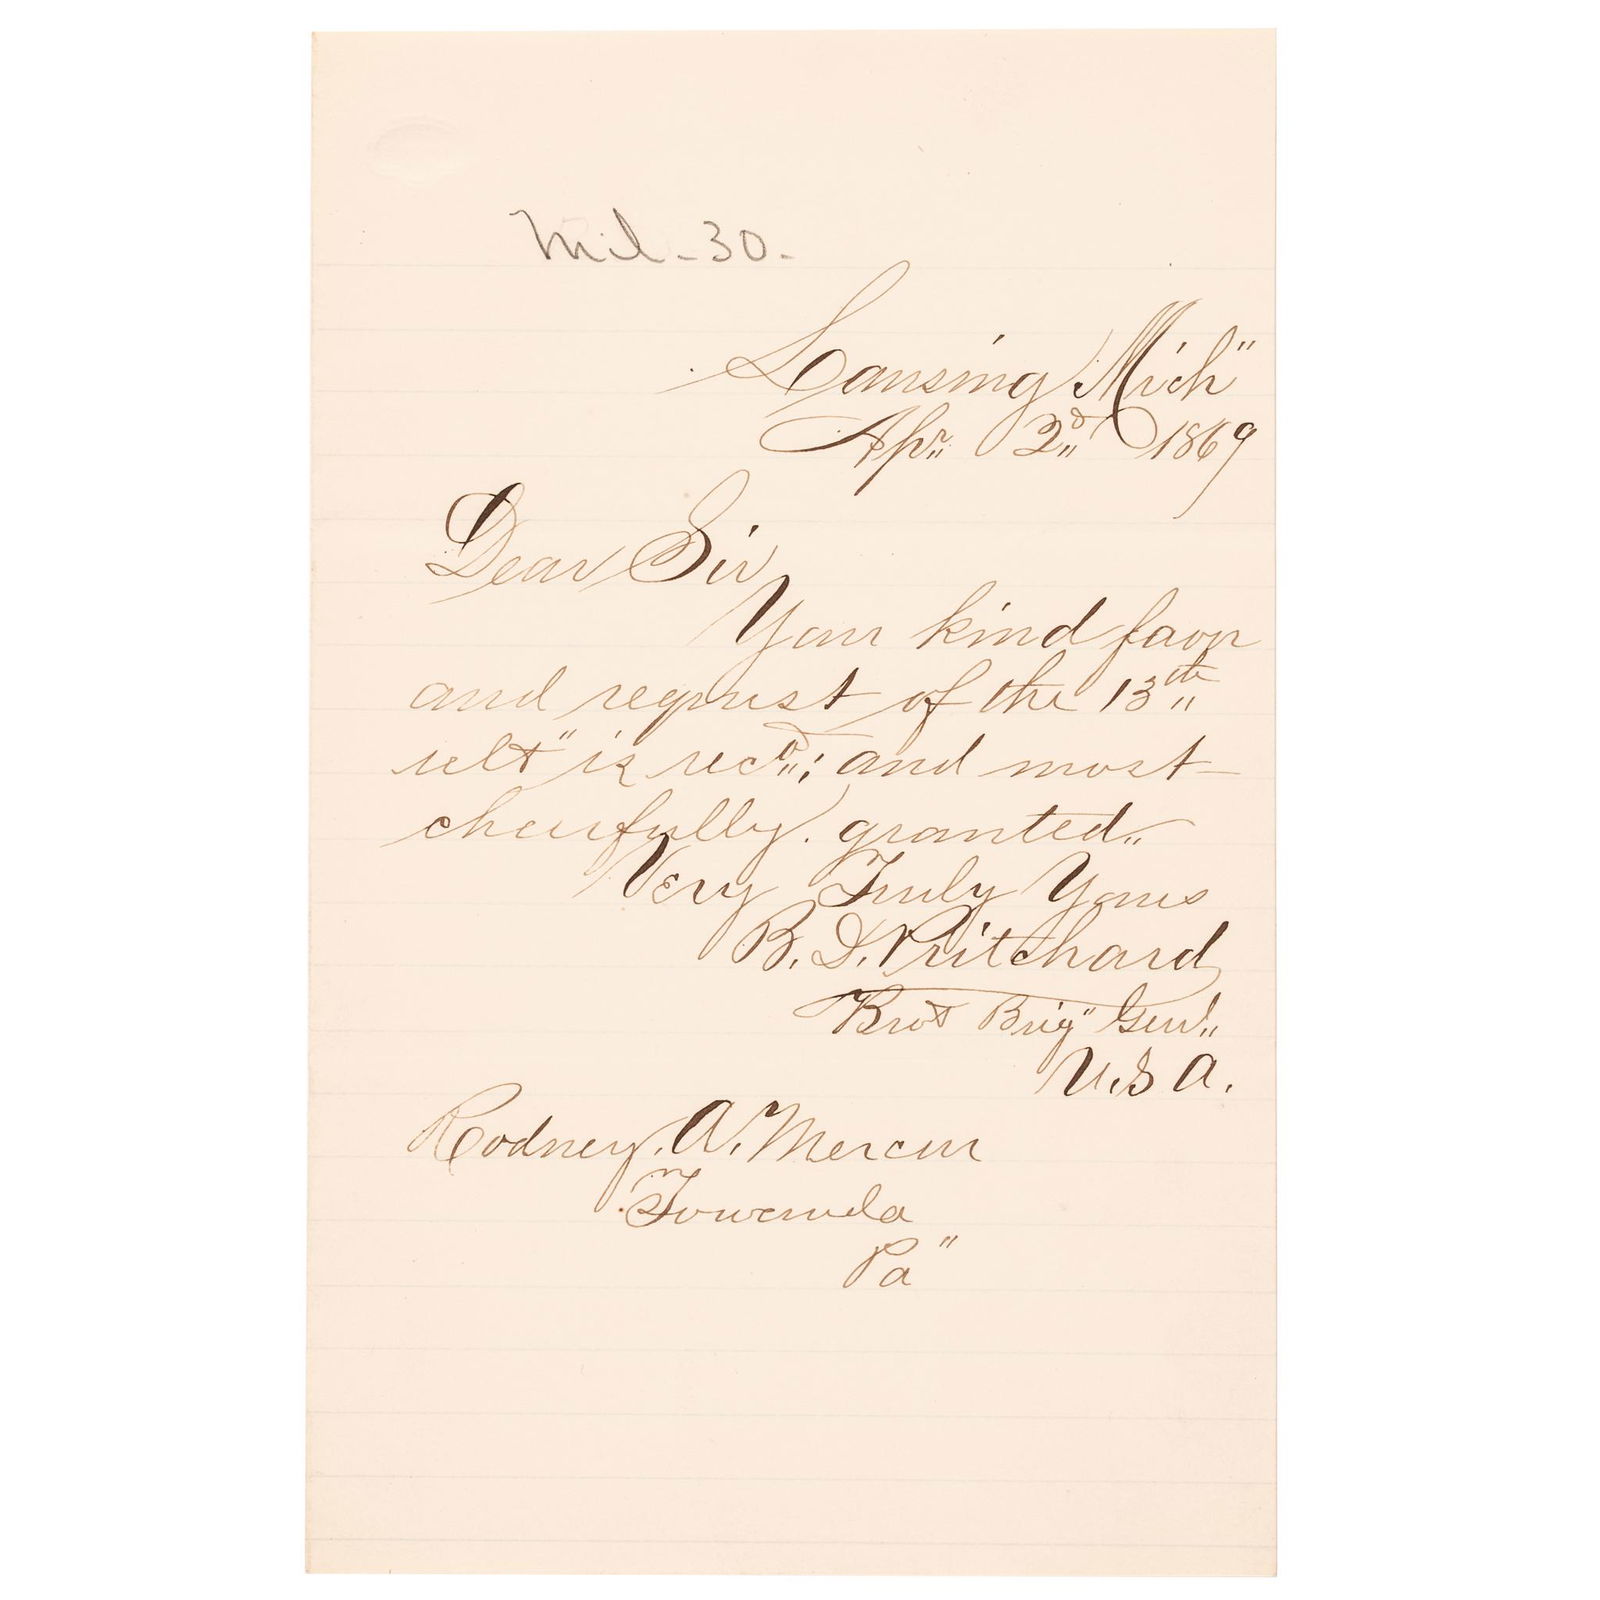 Mil - 30 -
Lansing Mich"
Apr. 2d 1869
Dear Sir
Your kind favor
and request of the 13th
ult" is recd; and most
cheerfully granted.
Very Truly Yours
B. D. Pritchard
Brvt Brig" Genl.
U.S.A.
Rodney. A. Mercur
Towanda
Pa"